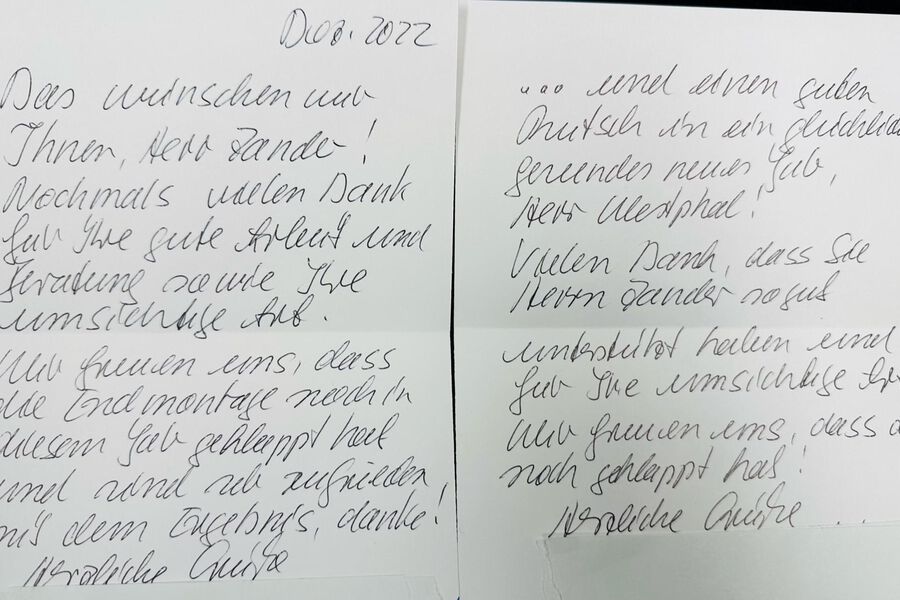 Dez. 2022
Das wünschen wir
Ihnen, Herr Zander!
Nochmals vielen Dank
für Ihre gute Arbeit und
Beratung sowie Ihre
umsichtige Art.
Wir freuen uns, dass
die Endmontage noch in
diesem Jahr geklappt hat
und sind sehr zufrieden
mit dem Ergebnis, danke!
Herzliche Grüße
... und einen guten
Rutsch in ein glücklich
gesundes neues Jahr,
Herr Westphal!
Vielen Dank, dass Sie
Herrn Zander so gut
unterstützt haben und
für Ihre umsichtige Art
Wir freuen uns, dass
noch geklappt hat!
Herzliche Grüße